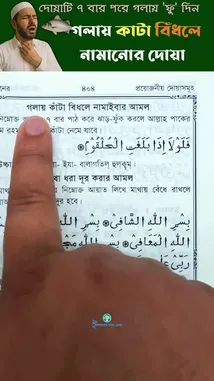 দোয়াটি ৭ বার পরে গলায় 'ফু' দিন
গলায় কাঁটা বিঁধলে
নামানোর দোয়া
৪০৪ প্রয়োজনীয় দোয়াসমূহ
গলায় কাঁটা বিধলে নামাইবার আমল
৭ বার পাঠ করে ঝাড়-ফুঁক করলে আল্লাহ পাকের
কাঁটা নেমে যাবে।
فَلَوْلَا إِذَا بَلَغَتِ الْحُلْقُوْمَ
ইযা- বালাগতিল্ হুলকুম্।
ধরা দূর করার আমল
নিম্নোক্ত আয়াত লিখে মাথায় বেঁধে রাখলে
দূর হবে।
بِسْمِ اللهِ الشَّافِيْ بِسْمِ اللهِ
اللهِ الْمَعَافِيْ بِسْمِ اللهِ
رَبِّيْ